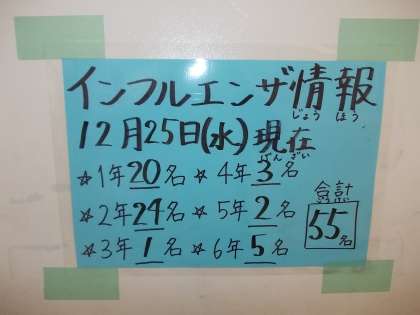 インフルエンザ情報
じょう ほう
12月25日(水)現在
げん ざい
☆1年20名 ☆4年3名
☆2年24名 ☆5年2名
☆3年1名 ☆6年5名
合計
55名